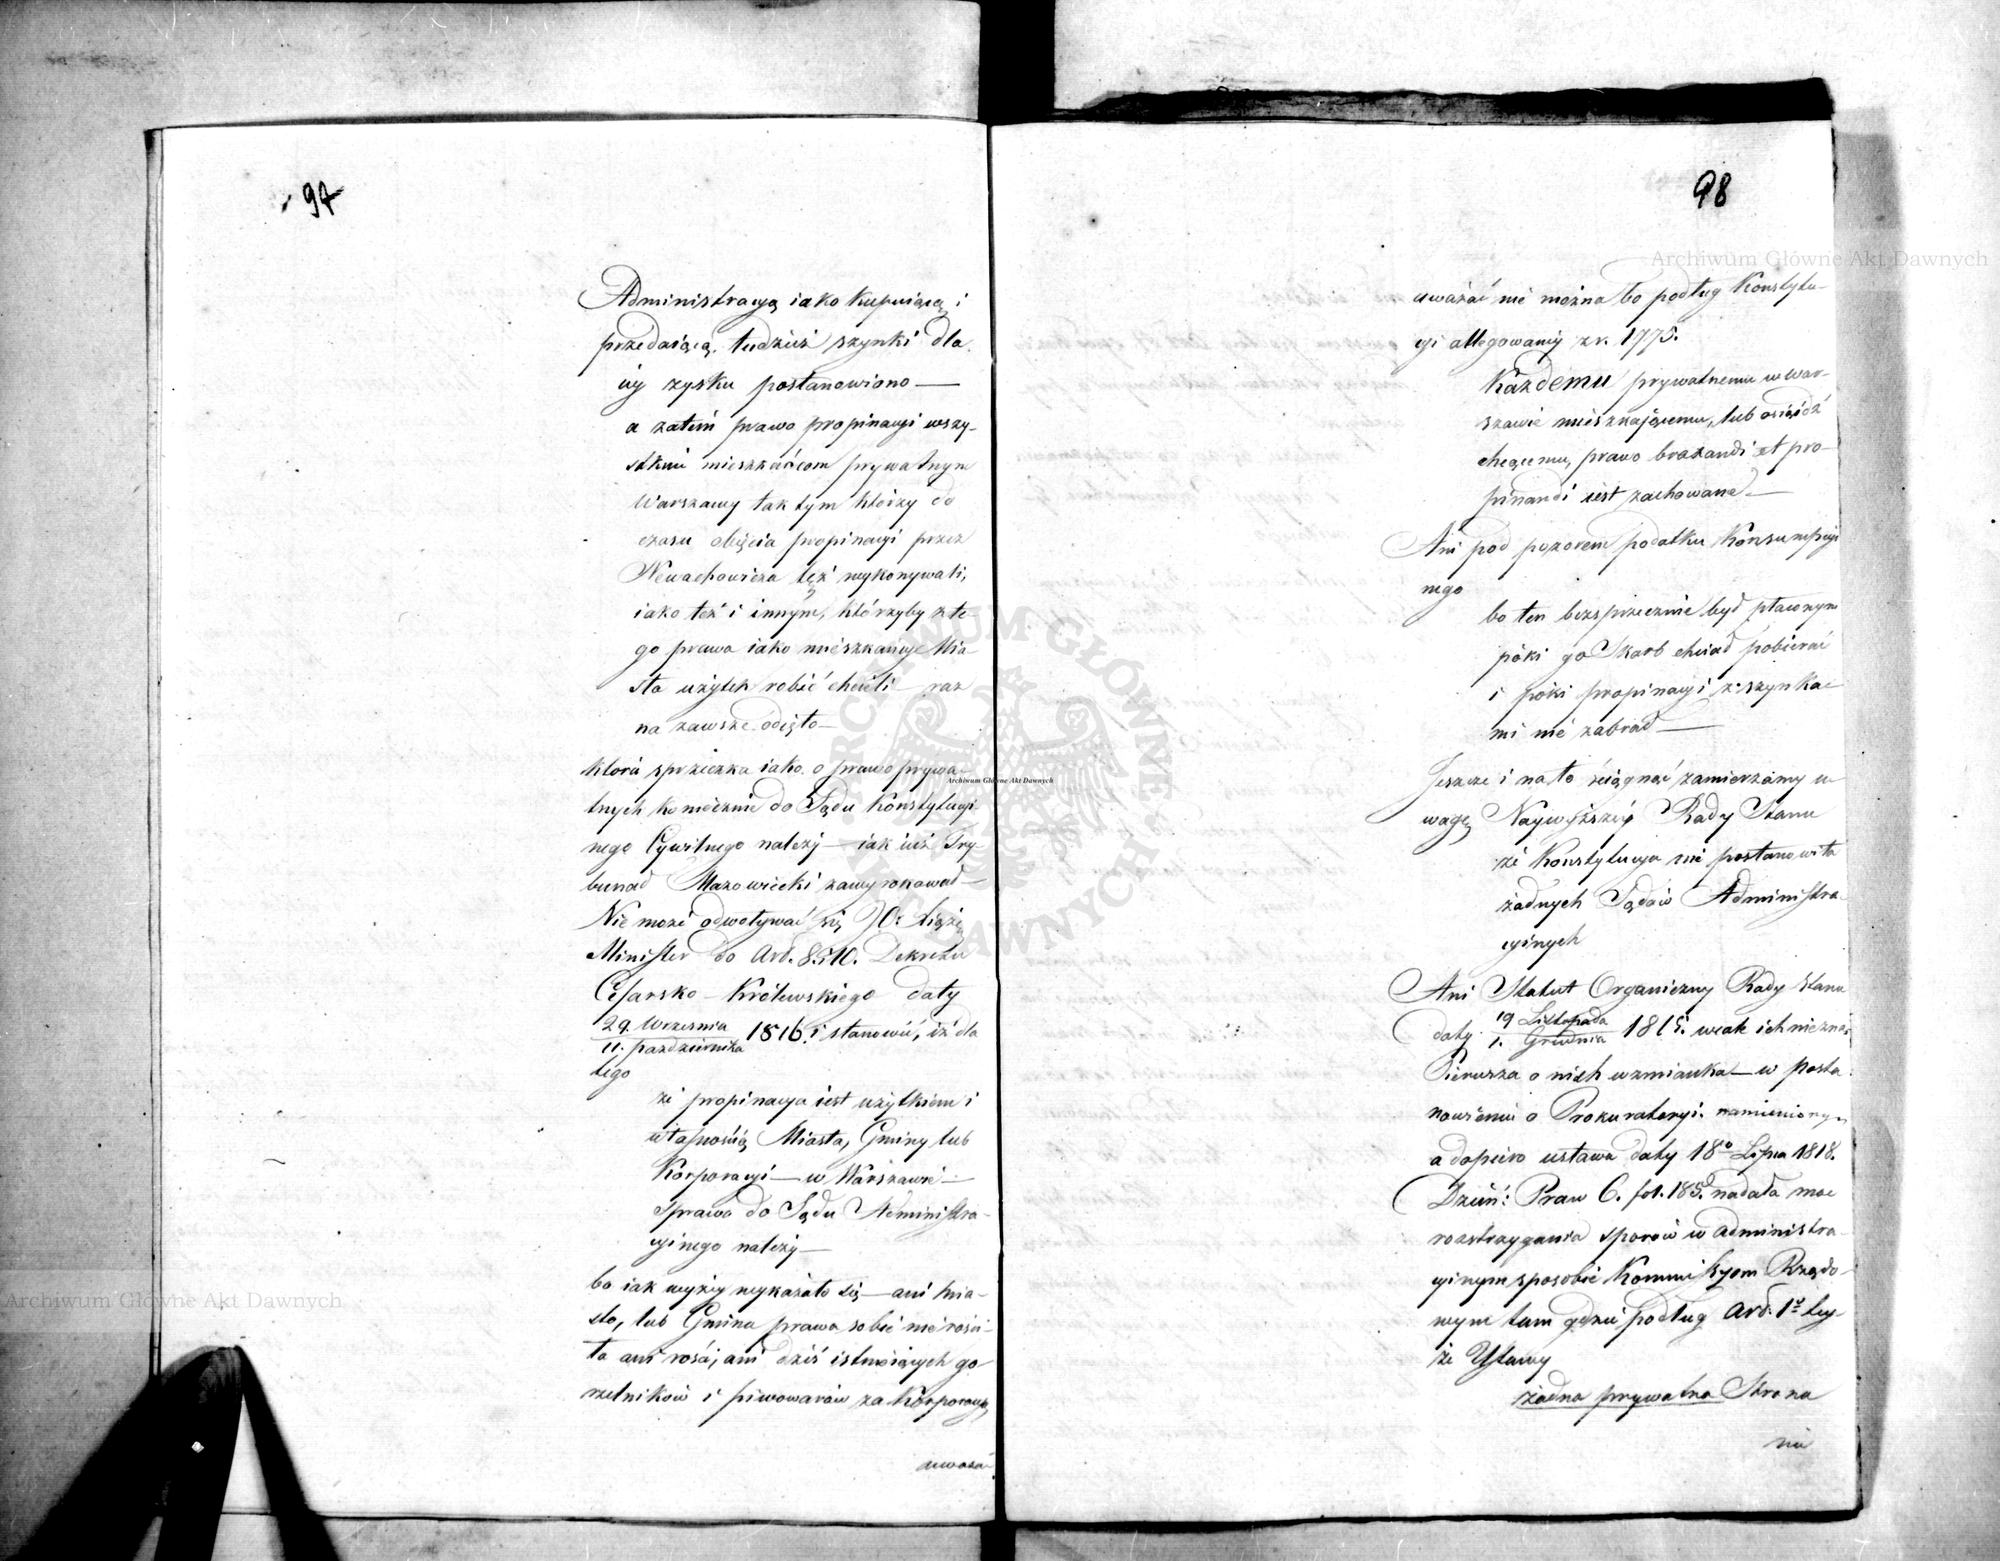 97
Administracyą iako kupuiącą i
przedaiącą, tudzież szynki dla
iéy zysku postanowiono —
a zatém prawo propinacyi wszy-
stkim mieszkańcom prywatnym
Warszawy tak tym którzy do
czasu obięcia propinacyi przez
Newachowicza też wykonywali,
iako też i innym, którzyby z te-
go prawa iako mieszkańcy Mia-
sta użytek robić chcieli — raz
na zawsze odięto —
która sprzeczka iako o prawo prywa-
tnych koniecznie do Sądu Konstytucyi
nego Cywilnego należy — iak iuż Try-
bunał Mazowiecki zawyrokował —
Nie może odwoływać się JO: Xiążę
Minister do Art. 8. i 10. Dekretu
Cesarsko-Królewskiego daty
29. Września
11. Października 1816. i stanowić, iż dla
tego
że propinacya iest użytkiem i
własnością Miasta, Gminy lub
Korporacyi — w Warszawie —
sprawa do Sądu Administra-
cyinego należy —
bo iak wyżey wykazało się — ani mia-
sto, lub Gmina prawa sobie nie rości-
ła ani rości, ani dziś istnieiących go-
rzelników i piwowarów za Korporacyą
uważać
98
uważać nie można bo podług Konstytu-
cyi allegowaney z r. 1775.
Każdemu prywatnemu w War-
szawie mieszkaiącemu, lub osiąśdź
chcącemu, prawo braxandi et pro-
pinandi iest zachowane —
Ani pod pozorem podatku Konsumpcyi
nego
bo ten bezsprzecznie był płaconym
póki go Skarb chciał pobierać
i póki propinacyi z szynka-
mi nie zabrał —
Jeszcze i na to ściągnąć zamierzamy u-
wagę Naywyższey Rady Stanu
że Konstytucya nie postanowiła
żadnych Sądów Administra-
cyinych
Ani Statut Organiczny Rady Stanu
daty 19 Listopada
1. Grudnia 1815. wcale ich nie zna,
Pierwsza o nich wzmianka — w posta-
nowieniu o Prokuratoryi namienionym
a dopiero ustawa daty 18º Lipca 1818.
Dzień: Praw 6. fol. 185. nadała moc
rozstrzygania sporów w administra-
cyinym sposobie Kommissyom Rządo-
wym tam gdzie podług Art. 1º tey-
że Ustawy
żadna prywatna Strona
nie
Archiwum Główne Akt Dawnych
Archiwum Główne Akt Dawnych
Archiwum Główne Akt Dawnych
ARCHIWUM GŁÓWNE AKT DAWNYCH